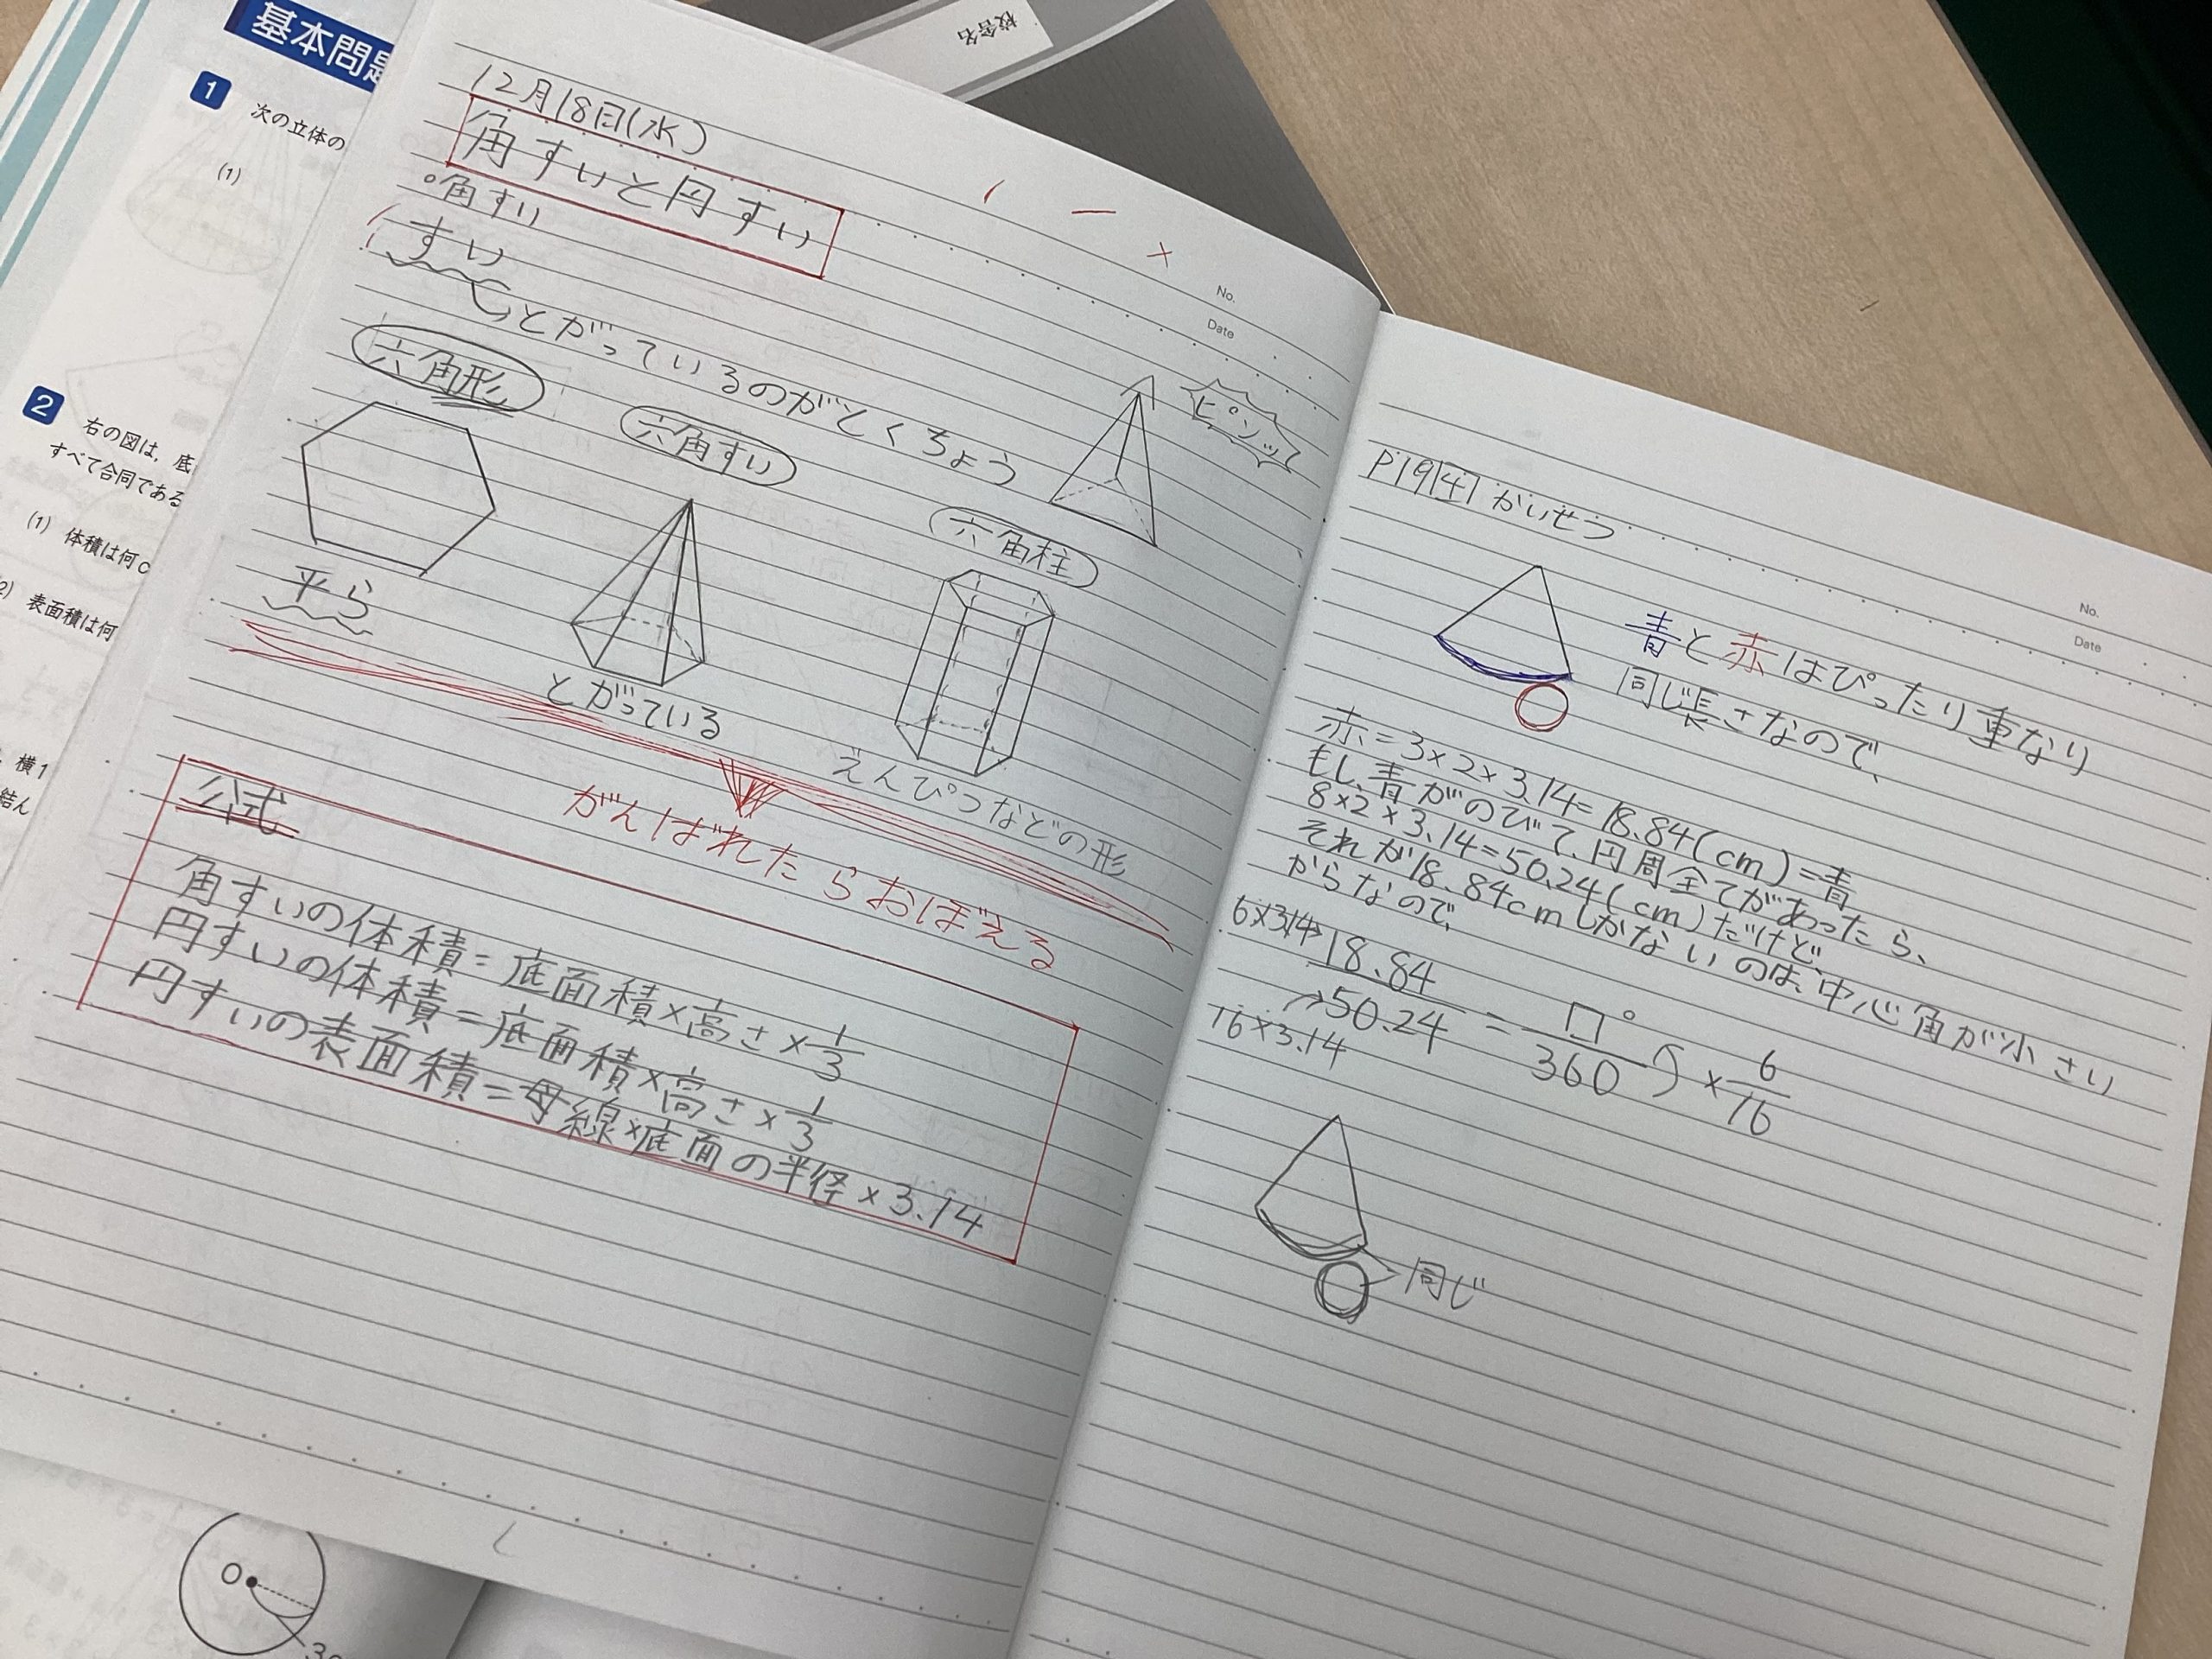 基本問題
1
次の立体の
(1)
2
右の図は，底
すべて合同である
(1) 体積は何c
2) 表面積は何
，横1
結ん
校舎名
12月18日(水)
角すいと円すい
°角すい
すい
とがっているのがとくちょう
ピンッ
六角形
六角すい
六角柱
平ら
とがっている
えんぴつなどの形
がんばれたらおぼえる
公式
角すいの体積=底面積×高さ×1/3
円すいの体積=底面積×高さ×1/3
円すいの表面積=母線×底面の半径×3.14
No.
Date
P19 4 かいせつ
No.
Date
青と赤はぴったり重なり
同じ長さなので、
赤=3×2×3.14=18.84(cm)=青
もし、青がのびて、円周全てがあったら、
8×2×3.14=50.24(cm)だけど、
それが18.84cmしかないのは、中心角が小さい
からなので、
6×3.14→18.84/50.24=□°/360 ×6/16
16×3.14
同じ
O